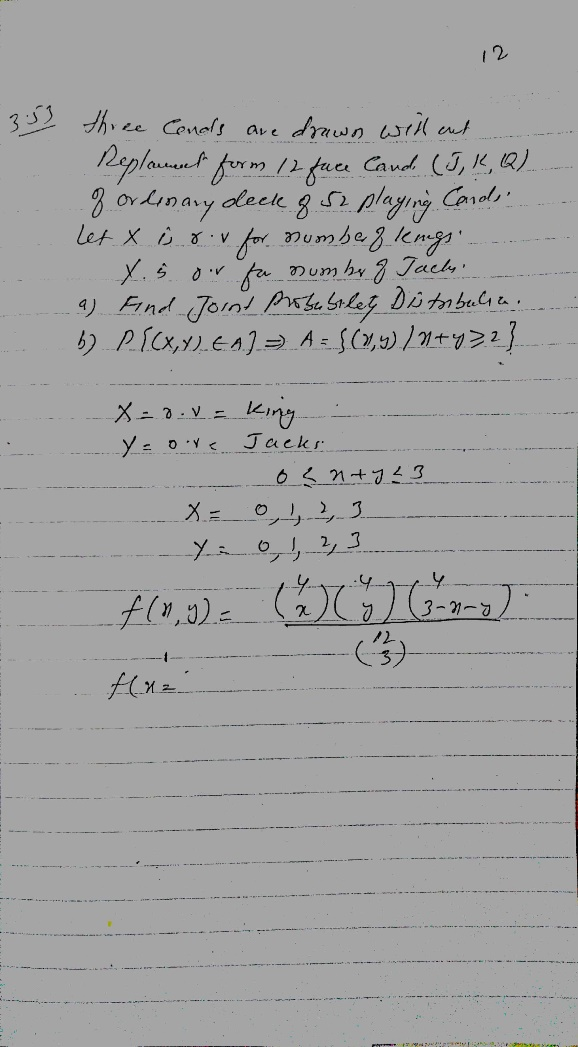 12
3.53 three Cards are drawn without
Replacement form 12 face Card (J, K, Q)
of ordinary deck of 52 playing Cards.
Let X is r.v for number of kings.
Y is r.v for number of Jacks.
a) Find Joint Probability Distribution.
b) P[(X,Y) ∈ A] ⇒ A = {(x,y) / x+y ≥ 2}
X = r.v = King
Y = r.v = Jacks
0 ≤ x+y ≤ 3
X = 0, 1, 2, 3
Y = 0, 1, 2, 3
f(x,y) = (4 x)(4 y)(4 3-x-y)
(12 3)
f(x =